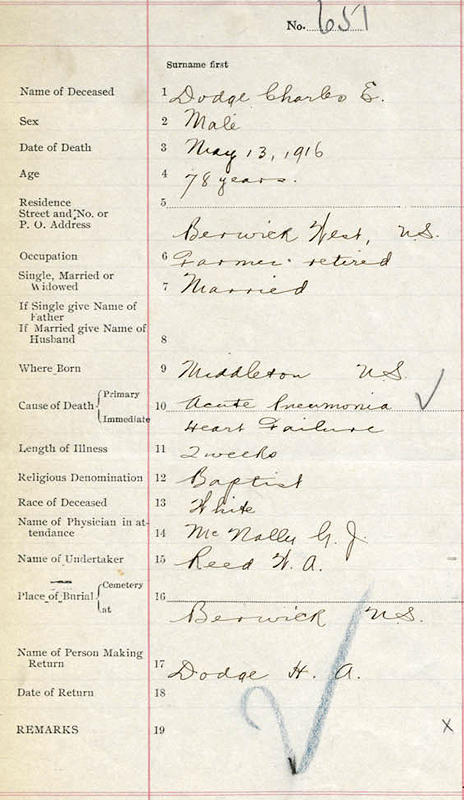 No. 651
Surname first
Name of Deceased 1 Dodge Charles E.
Sex 2 Male
Date of Death 3 May 13, 1916
Age 4 78 years.
Residence 5
Street and No. or
P. O. Address Berwick West, N.S.
Occupation 6 Farmer retired
Single, Married or
Widowed 7 Married
If Single give Name of
Father
If Married give Name of
Husband 8
Where Born 9 Middleton N.S.
Cause of Death Primary 10 Acute Pneumonia
Immediate Heart Failure
Length of Illness 11 2 weeks
Religious Denomination 12 Baptist
Race of Deceased 13 White
Name of Physician in at-
tendance 14 McNally G. J.
Name of Undertaker 15 Reed W. A.
Place of Burial Cemetery 16
at Berwick N.S.
Name of Person Making
Return 17 Dodge H. A.
Date of Return 18
REMARKS 19 x